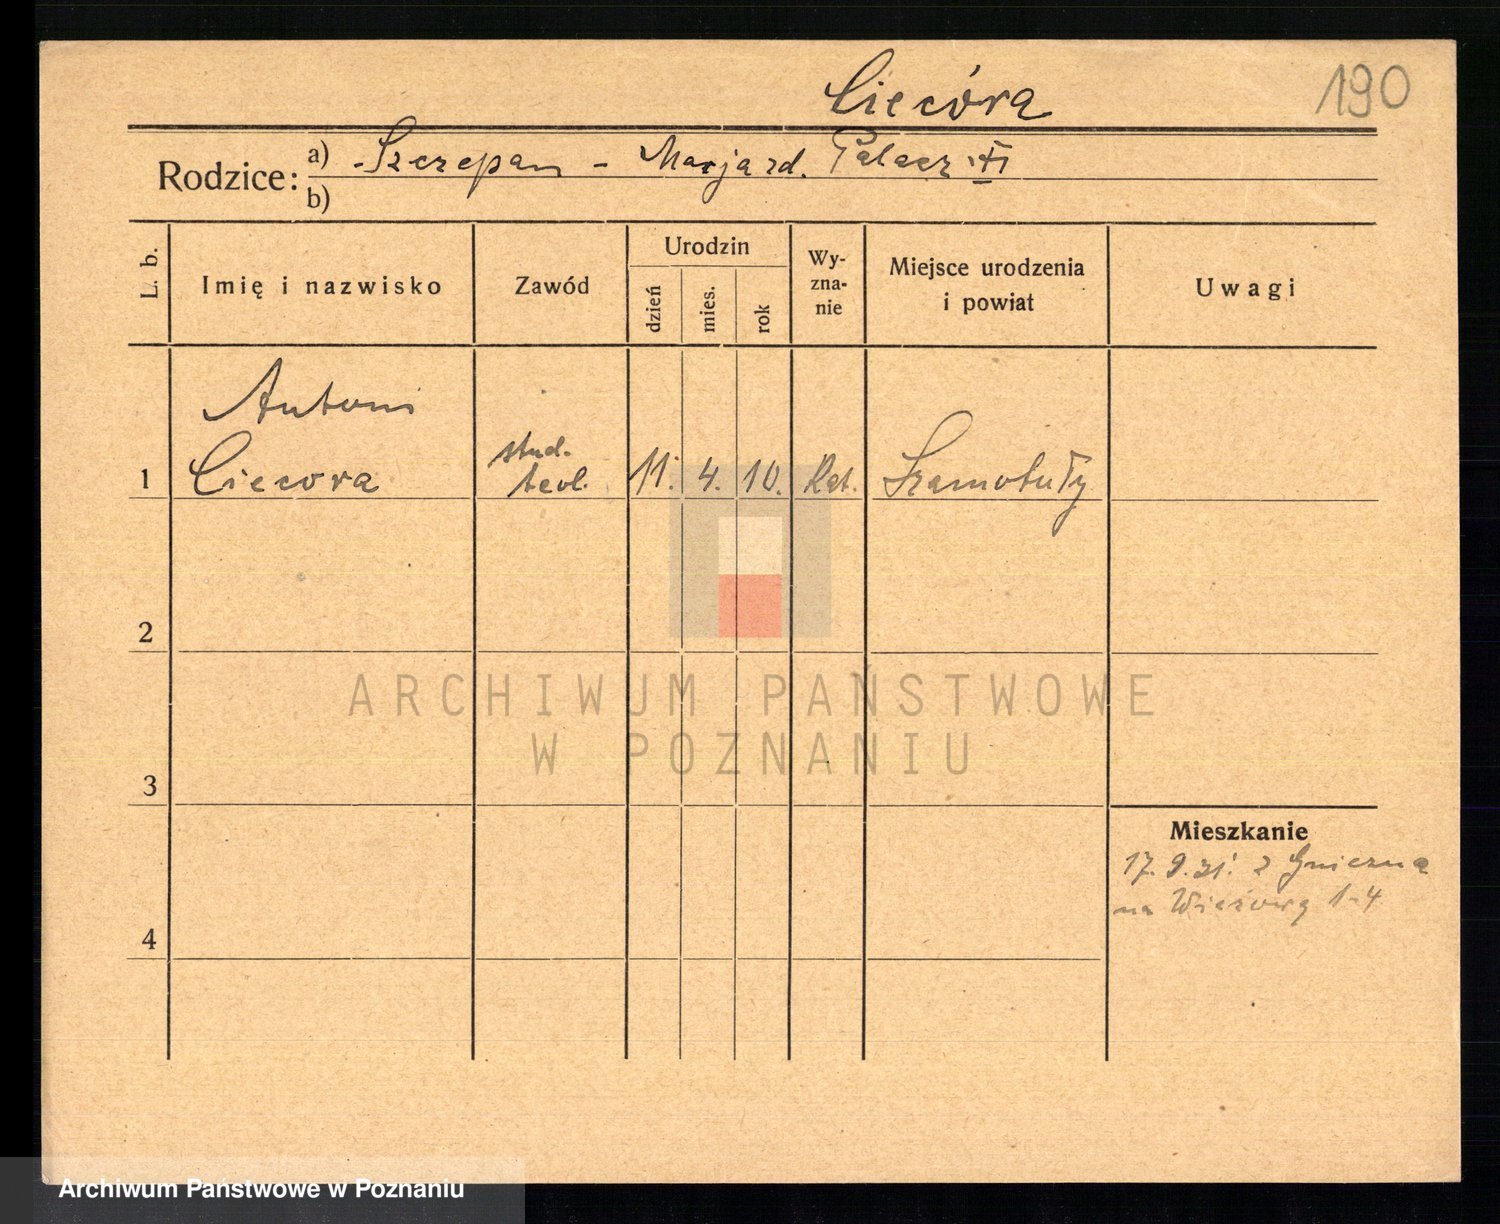 Ciecóra
190
Rodzice: a) - Szczepan - Marja zd. Palacz
b)
L. b.
Imię i nazwisko
Zawód
Urodzin
dzień
mies.
rok
Wy-
zna-
nie
Miejsce urodzenia
i powiat
Uwagi
Antoni
1 Ciecora
stud.
teol.
11. 4. 10.
Kat.
Szamotuły
2
3
4
Mieszkanie
17. 9. 31. z Gniezna
na Wieżową 1-4
ARCHIWUM PAŃSTWOWE
W POZNANIU
Archiwum Państwowe w Poznaniu